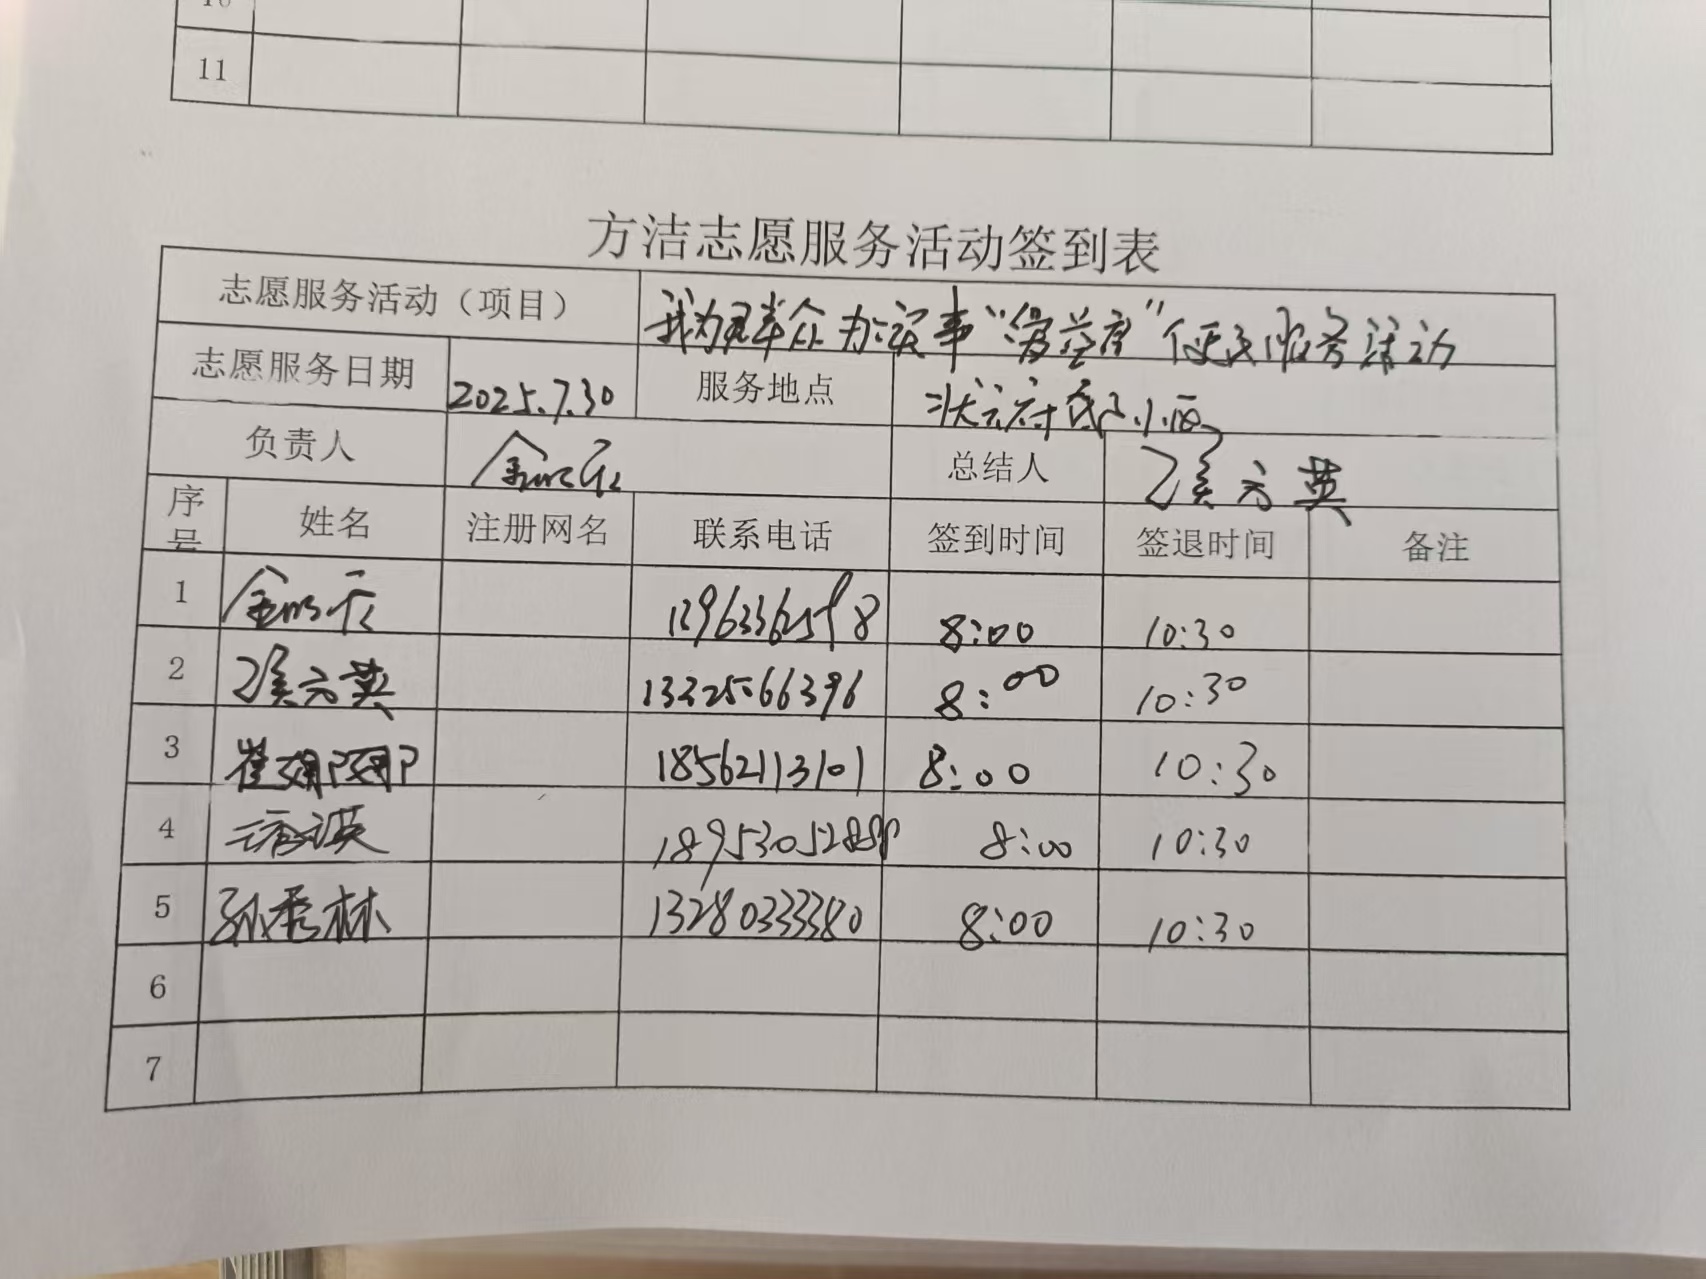 11
方洁志愿服务活动签到表
志愿服务活动（项目） 我为群众办实事“爱益家”便民服务活动
志愿服务日期 2025.7.30 服务地点 状元府 小区
负责人 总结人 元英
序号 姓名 注册网名 联系电话 签到时间 签退时间 备注
1 8:00 10:30
2 元英 13325066396 8:00 10:30
3 崔娜娜 18562113101 8:00 10:30
4 8:00 10:30
5 孙秀林 13280333380 8:00 10:30
6
7